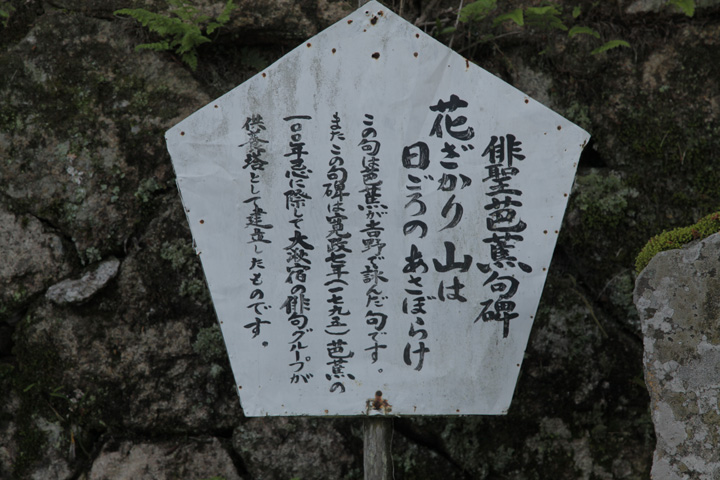 俳聖芭蕉句碑
花ざかり 山は
日ごろの あさぼらけ
この句は芭蕉が吉野で詠んだ句です。
またこの句碑は寛政七年(一七九五)芭蕉の
一〇〇年忌に際して大湫宿の俳句グループが
供養塔として建立したものです。